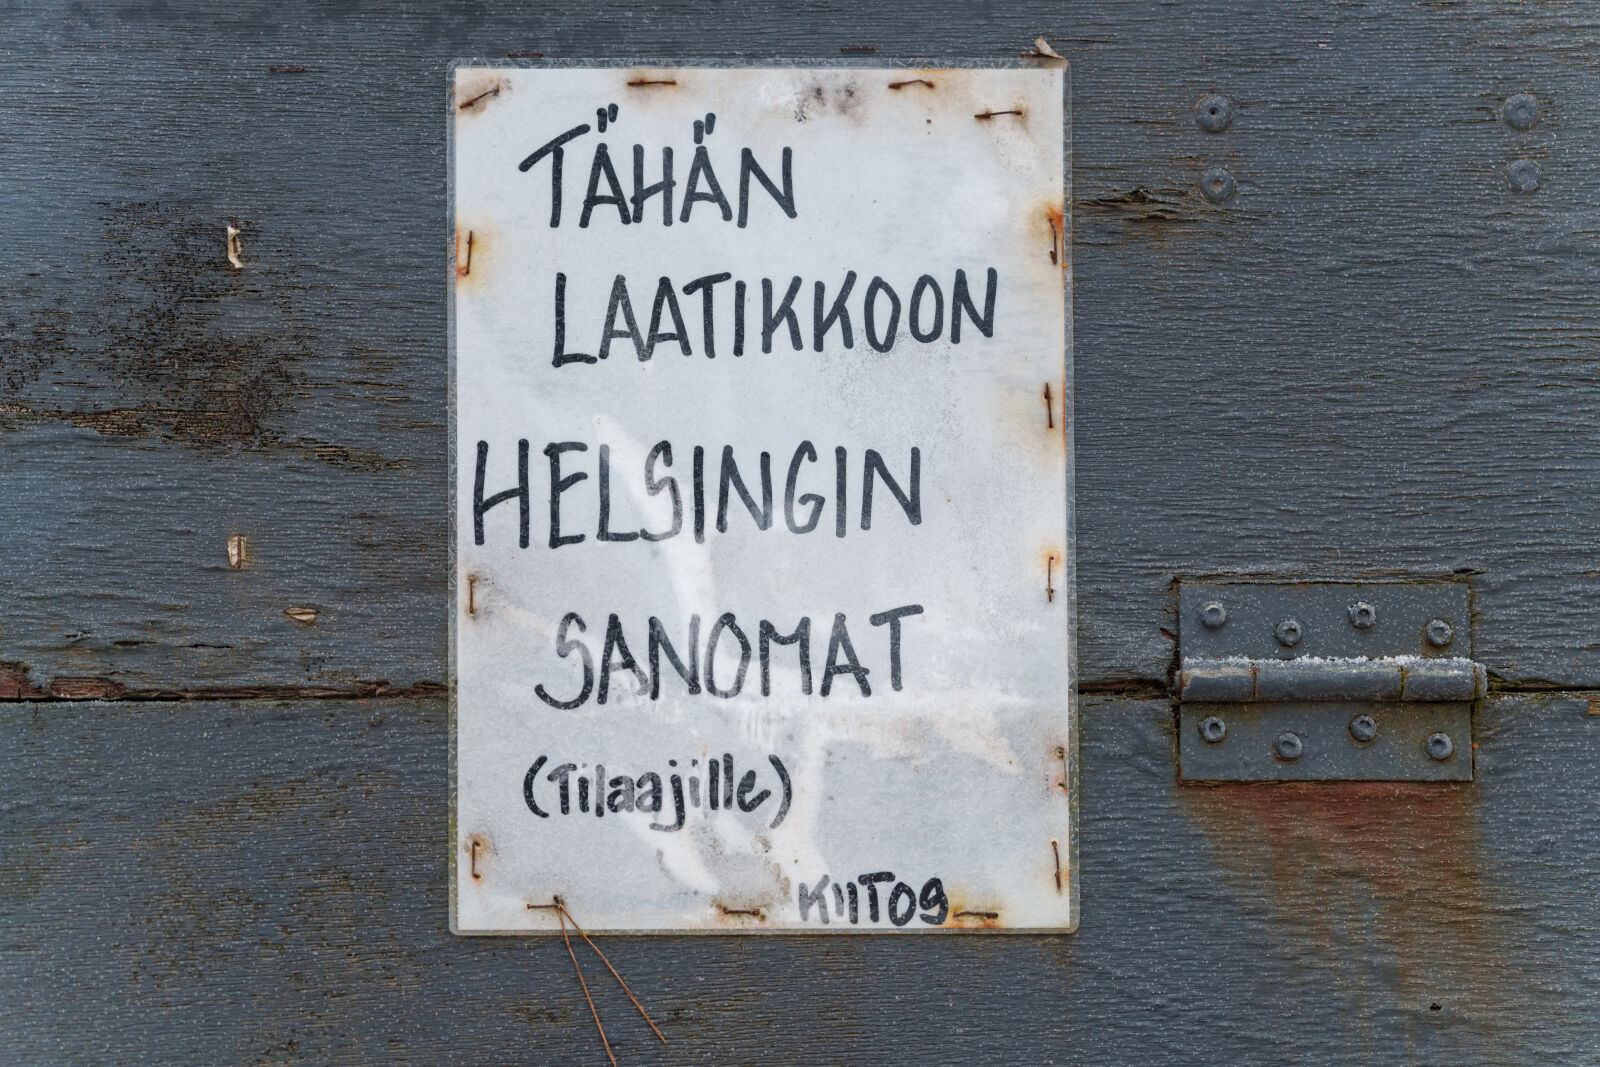 TÄHÄN
LAATIKKOON
HELSINGIN
SANOMAT
(Tilaajille)
KIITOS